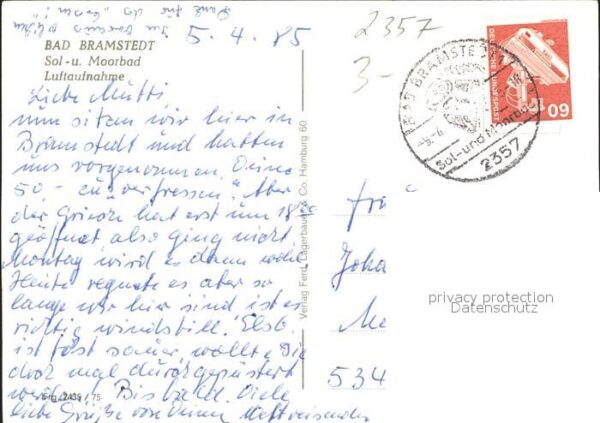 Dank für das "Essen"!
5.4.85
BAD BRAMSTEDT
Sol - u. Moorbad
Luftaufnahme
Liebe Mutti,
nun sitzen wir hier in
Bramstedt und hatten
uns vorgenommen, Deine
50,- zu "verfressen". Aber
der Grieche hat erst um 18 00
geöffnet also ging nicht.
Montag wird es dann wohl.
Heute regnete es aber so
lange wir hier sind ist es
richtig windstill. Elsb.
ist fast sauer, wollte Sie
doch mal durchgepustert
werden! Bis bald. Viele
liebe Grüße von Deinen
2435 / 75
Verlag Ferd. Lagerbauer & Co. Hamburg 60
2357
3-
DEUTSCHE BUNDESPOST
60
BAD BRAMSTEDT
Sol- und Moorbad
2357
Joha
Me
534
privacy protection
Datenschutz